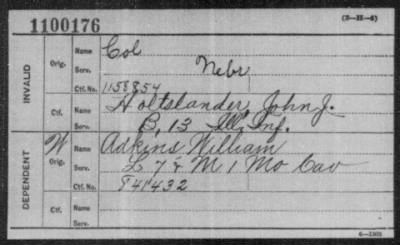 1100176
(3—H—6)
INVALID
Orig.
Name Col
Serv. Nebr
Ctf. No. 1158854
Ctf.
Name Holtslander, John J.
Serv. B, 13 Ill. Inf.
DEPENDENT
W
Orig.
Name Adkins William
Serv. L 7 & M 1 Mo Cav
Ctf. No. 841432
Ctf.
Name
Serv.
6—1308